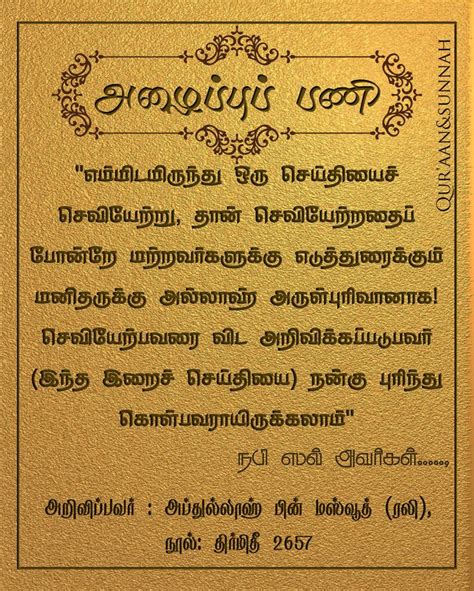 அழைப்புப் பணி
"எம்மிடமிருந்து ஒரு செய்தியைச்
செவியேற்று, தான் செவியேற்றதைப்
போன்றே மற்றவர்களுக்கு எடுத்துரைக்கும்
மனிதருக்கு அல்லாஹ் அருள்புரிவானாக!
செவியேற்பவரை விட அறிவிக்கப்படுபவர்
(இந்த இறைச் செய்தியை) நன்கு புரிந்து
கொள்பவராயிருக்கலாம்"
நபி ஸல் அவர்கள்.....,
அறிவிப்பவர் : அப்துல்லாஹ் பின் மஸ்வூத் (ரலி),
நூல்: திர்மிதீ 2657
QUR'AAN&SUNNAH